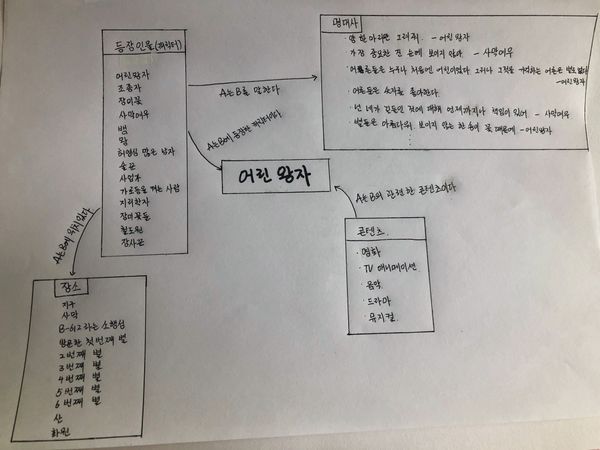 등장인물(캐릭터)
어린왕자
조종사
장미꽃
사막여우
뱀
왕
허영심 많은 남자
술꾼
사업가
가로등을 켜는 사람
지리학자
장미꽃들
철도원
장사꾼
A는 B를 말한다
A는 B에 등장한 캐릭터이다
A는 B에 위치 있다
명대사
· 양 한 마리만 그려줘. - 어린왕자
· 가장 중요한 건 눈에 보이지 않아 - 사막여우
· 어른들은 누구나 처음엔 어린이였다. 그러나 그것을 기억하는 어른은 별로 없다
- 어린왕자
· 어른들은 숫자를 좋아한다.
· 넌 네가 길들인 것에 대해 언제까지나 책임이 있어 - 사막여우
· 별들은 아름다워. 보이지 않는 한 송이 꽃 때문에 - 어린왕자
어린 왕자
A는 B의 관련한 콘텐츠이다
콘텐츠
· 영화
· TV 애니메이션
· 음악
· 드라마
· 뮤지컬.
장소
지구
사막
B-612라는 소행성
방문한 첫번째 별
2번째 별
3번째 별
4번째 별
5번째 별
6번째 별
산
화원